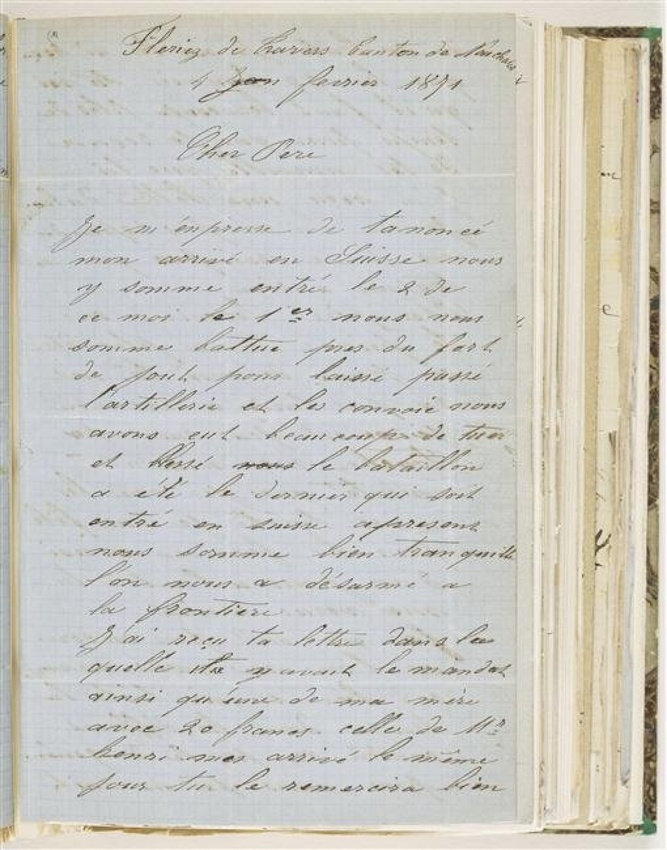 Fleriez de Travers Canton de Neuchatel
4 Jan fevrier 1871
Cher Pere
Je m'enpresse de tanoncé
mon arrivé en Suisse nous
y somme entré le 2 de
ce moi le 1er nous nous
somme battue pres du fort
de jout pour laissé passé
l'artillerie et les convoie nous
avons eut beaucoup de tuer
et blessé nous le bataillon
a été le dernier qui soit
entré en suisse apresent
nous somme bien tranquille
l'on nous a désarmé a
la frontiere
J'ai reçu ta lettre dans la
quelle y avait le mandat
ainsi qu'une de ma mère
avec 20 francs celle de Mr
henri mes arrivé le même
jour tu le remercira bien